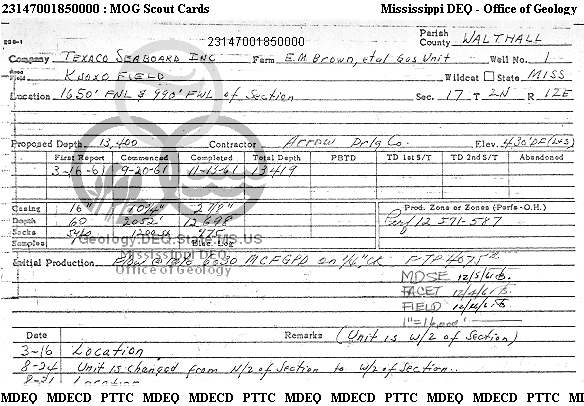 23147001850000 : MOG Scout Cards Mississippi DEQ - Office of Geology
23147001850000 Parish County WALTHALL
Company TEXACO SEABOARD INC Farm E.M. Brown, etal Gas Unit Well No. 1
Field KNOXO FIELD Wildcat State MISS
Location 1650' FNL & 990' FWL of Section Sec. 17 T 2N R 12E
Proposed Depth 13,400 Contractor Arrow Drlg Co. Elev. 430' DF
First Report Commenced Completed Total Depth PBTD TD 1st S/T TD 2nd S/T Abandoned
3-16-61 9-20-61 11-13-61 13419
Casing 16" 10 3/4" 2 7/8" Prod. Zone or Zones (Perfs-O.H.)
Depth 60 2052' 12698 Perf 12571-587
Sacks 540 1200 475
Samples Elec. Log
Geology.DEQ.State.MS.US
Mississippi DEQ
Office of Geology
Initial Production Flow MCFGPD on CK FTP 4075#
MDSE 12/5/61
FACET 12/4/61
FIELD
1"=16,000'
Date Remarks (Unit is W/2 of Section)
3-16 Location
8-24 Unit is changed from N/2 of Section to W/2 of Section.
8-31 Location
MDEQ MDECD PTTC MDEQ MDECD PTTC MDEQ MDECD PTTC MDEQ MDECD PTTC M